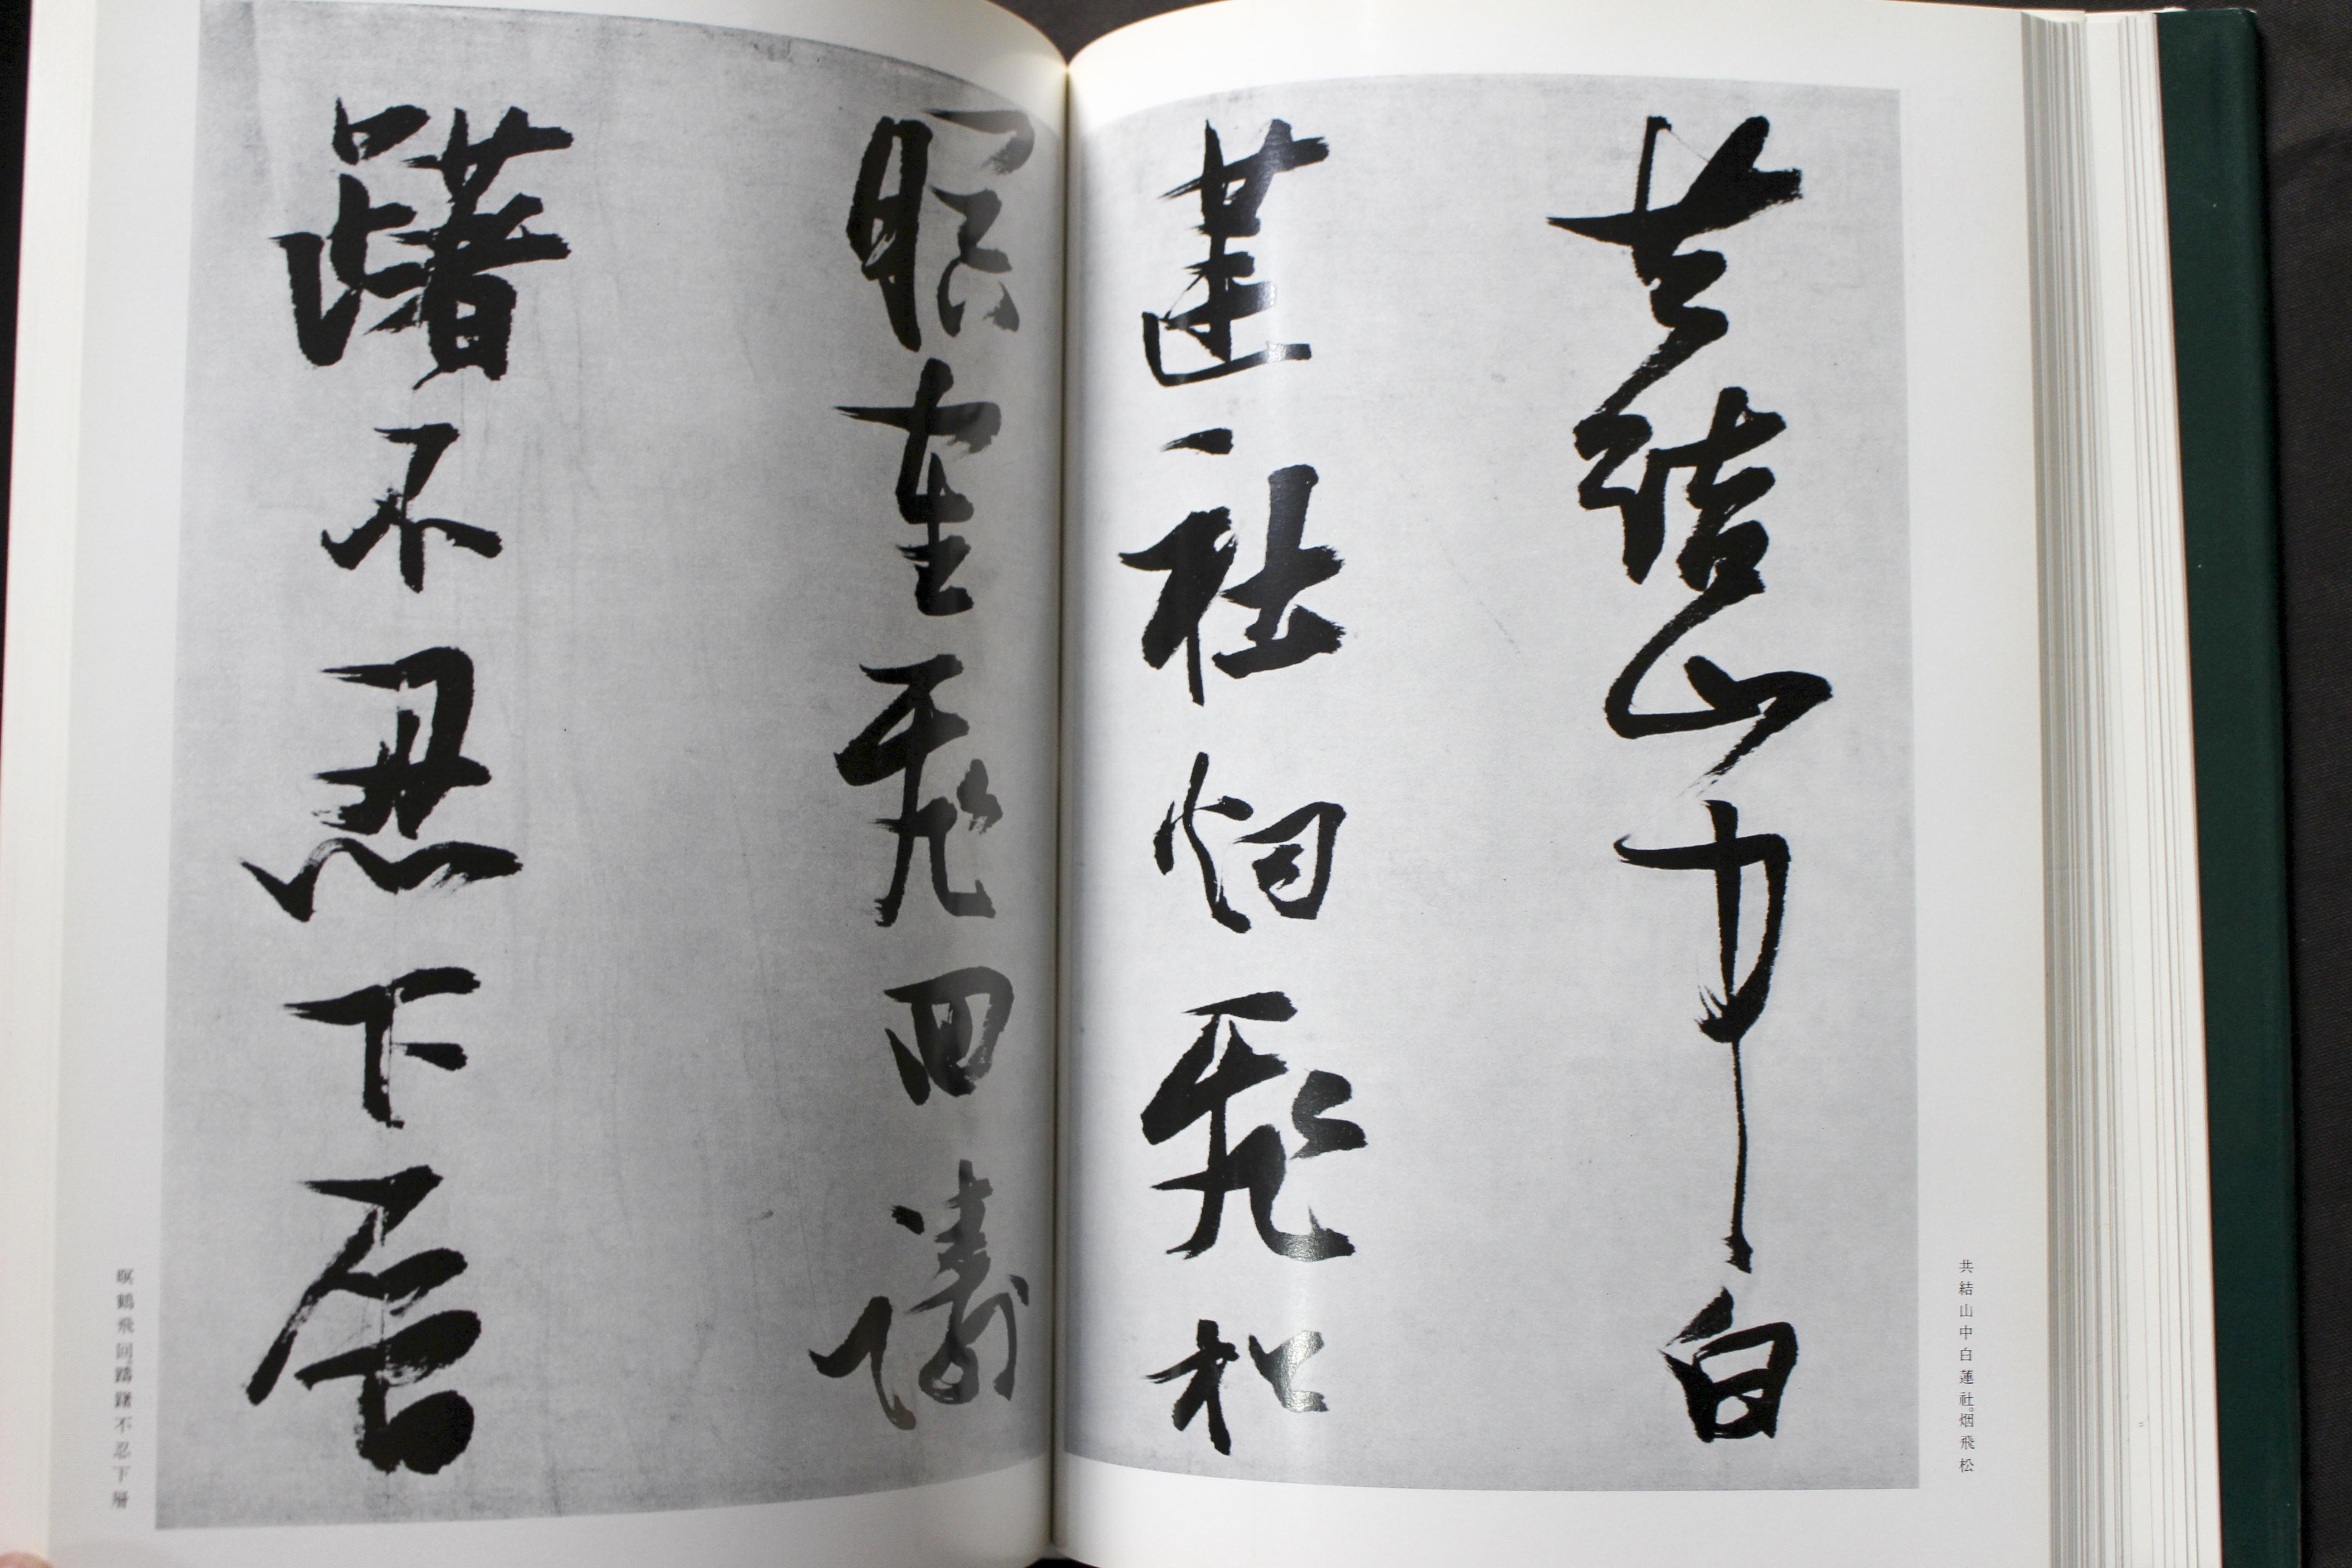 共結山中白
蓮社烟飛松
暝隺飛回躊
躇不忍下層
共結山中白蓮社。烟飛松
暝鶴飛回。躊躇不忍下層